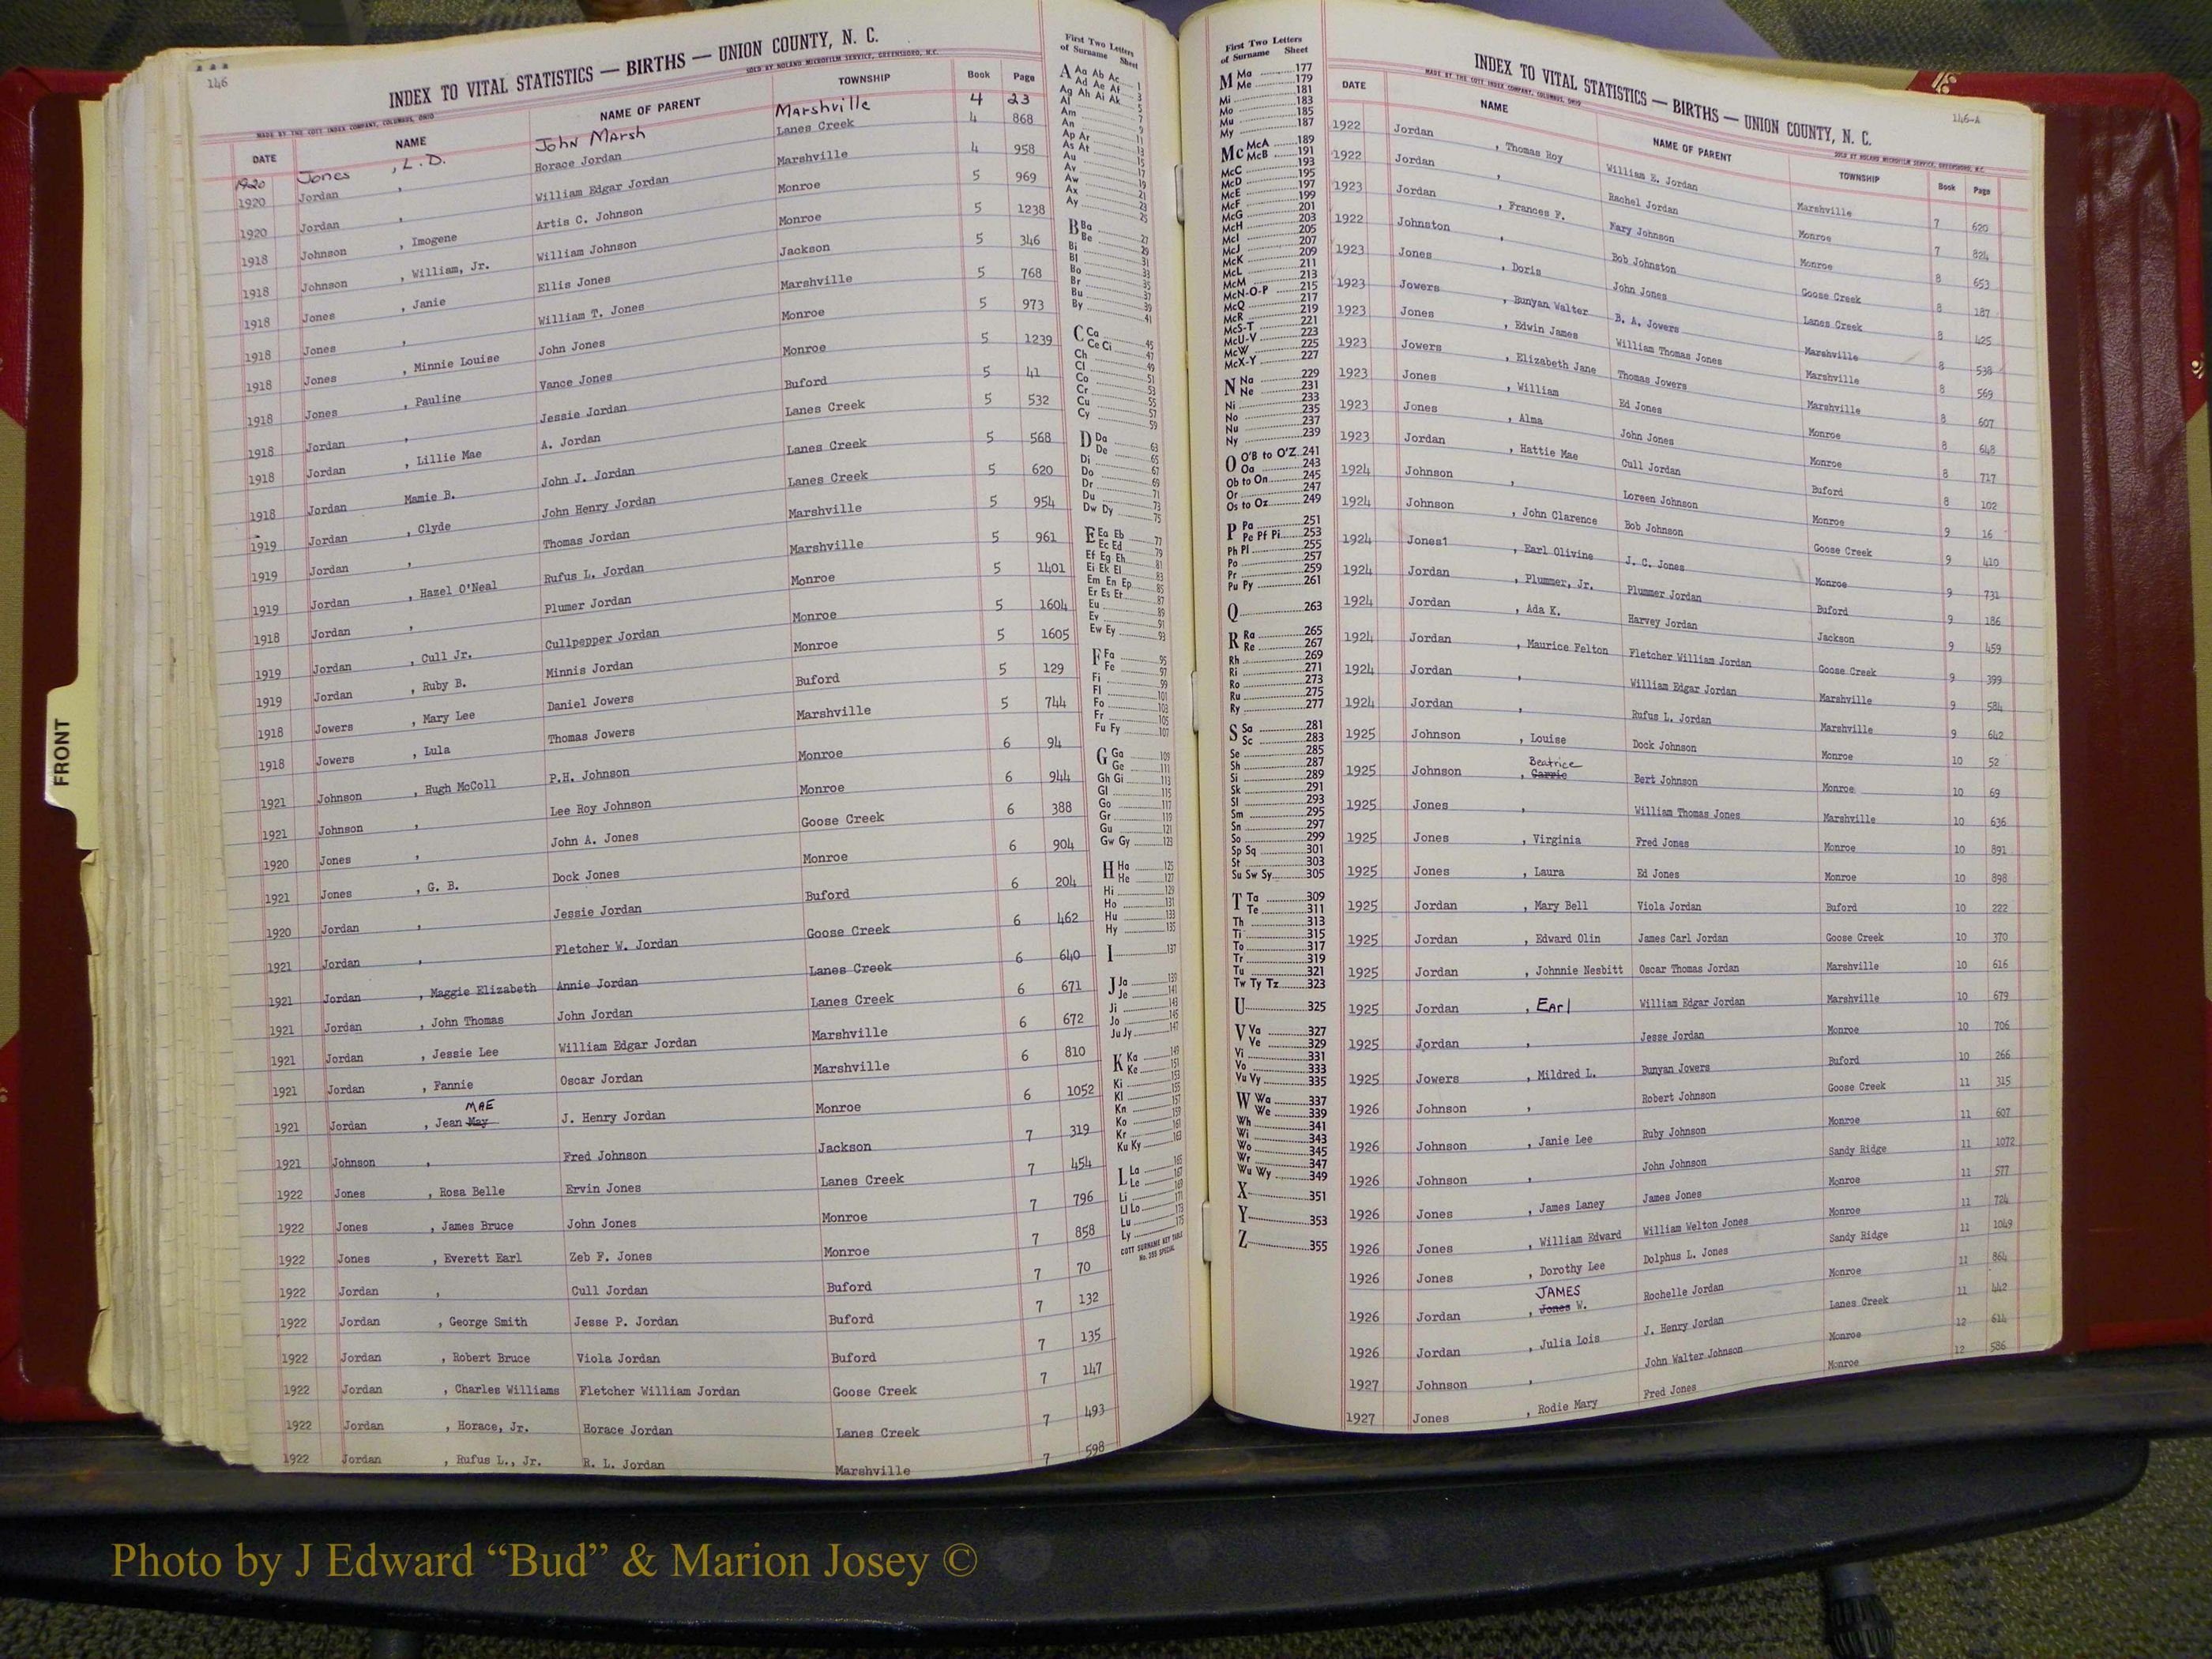 146
INDEX TO VITAL STATISTICS — BIRTHS — UNION COUNTY, N. C.
MADE BY THE COTT INDEX COMPANY, COLUMBUS, OHIO SOLD BY ROLAND MICROFILM SERVICE, GREENSBORO, N.C.
DATE NAME NAME OF PARENT TOWNSHIP Book Page
1920 Jones , L.D. John Marsh Marshville 4 23
1920 Jordan , Horace Jordan Lanes Creek 4 868
1920 Jordan , William Edgar Jordan Marshville 4 958
1918 Johnson , Imogene Artis C. Johnson Monroe 5 969
1918 Johnson , William, Jr. William Johnson Monroe 5 1238
1918 Jones , Janie Ellis Jones Jackson 5 346
1918 Jones , William T. Jones Marshville 5 768
1918 Jones , Minnie Louise John Jones Monroe 5 973
1918 Jones , Pauline Vance Jones Monroe 5 1239
1918 Jordan , Jessie Jordan Buford 5 41
1918 Jordan , Lillie Mae A. Jordan Lanes Creek 5 532
1918 Jordan Mamie B. John J. Jordan Lanes Creek 5 568
1919 Jordan , Clyde John Henry Jordan Lanes Creek 5 620
1919 Jordan , Thomas Jordan Marshville 5 954
1919 Jordan , Hazel O'Neal Rufus L. Jordan Marshville 5 961
1918 Jordan , Plumer Jordan Monroe 5 1401
1919 Jordan , Cull Jr. Cullpepper Jordan Monroe 5 1604
1919 Jordan , Ruby B. Minnis Jordan Monroe 5 1605
1918 Jowers , Mary Lee Daniel Jowers Buford 5 129
1918 Jowers , Lula Thomas Jowers Marshville 5 744
1921 Johnson , Hugh McColl P.H. Johnson Monroe 6 94
1921 Johnson , Lee Roy Johnson Monroe 6 944
1920 Jones , John A. Jones Goose Creek 6 388
1921 Jones , G. B. Dock Jones Monroe 6 904
1920 Jordan , Jessie Jordan Buford 6 204
1921 Jordan , Fletcher W. Jordan Goose Creek 6 462
1921 Jordan , Maggie Elizabeth Annie Jordan Lanes Creek 6 640
1921 Jordan , John Thomas John Jordan Lanes Creek 6 671
1921 Jordan , Jessie Lee William Edgar Jordan Marshville 6 672
1921 Jordan , Fannie Oscar Jordan Marshville 6 810
MAE
1921 Jordan , Jean May J. Henry Jordan Monroe 6 1052
1921 Johnson , Fred Johnson Jackson 7 319
1922 Jones , Rosa Belle Ervin Jones Lanes Creek 7 454
1922 Jones , James Bruce John Jones Monroe 7 796
1922 Jones , Everett Earl Zeb F. Jones Monroe 7 858
1922 Jordan , Cull Jordan Buford 7 70
1922 Jordan , George Smith Jesse P. Jordan Buford 7 132
1922 Jordan , Robert Bruce Viola Jordan Buford 7 135
1922 Jordan , Charles Williams Fletcher William Jordan Goose Creek 7 147
1922 Jordan , Horace, Jr. Horace Jordan Lanes Creek 7 493
1922 Jordan , Rufus L., Jr. R. L. Jordan Marshville 7 598
First Two Letters
of Surname Sheet
A Aa Ab Ac 1
Ad Ae Af 3
Ag Ah Ai Ak 5
Al 7
Am 9
An 11
Ap Ar 13
As At 15
Au 17
Av 19
Aw 21
Ax 23
Ay 25
B Ba 27
Be 29
Bi 31
Bl 33
Bo 35
Br 37
Bu 39
By 41
C Ca 45
Ce Ci 47
Ch 49
Cl 51
Co 53
Cr 55
Cu 57
Cy 59
D Da 63
De 65
Di 67
Do 69
Dr 71
Du 73
Dw Dy 75
E Ea Eb 77
Ec Ed 79
Ef Eg Eh 81
Ei Ek El 83
Em En Ep 85
Er Es Et 87
Eu 89
Ev 91
Ew Ey 93
F Fa 95
Fe 97
Fi 99
Fl 101
Fo 103
Fr 105
Fu Fy 107
G Ga 109
Ge 111
Gh Gi 113
Gl 115
Go 117
Gr 119
Gu 121
Gw Gy 123
H Ha 125
He 127
Hi 129
Ho 131
Hu 133
Hy 135
I 137
J Ja 139
Je 141
Ji 143
Jo 145
Ju Jy 147
K Ka 149
Ke 151
Ki 153
Kl 155
Kn 157
Ko 159
Kr 161
Ku Ky 163
L La 165
Le 167
Li 169
Ll Lo 171
Lu 173
Ly 175
COTT SURNAME KEY TABLE
No. 355 SPECIAL
First Two Letters
of Surname Sheet
M Ma 177
Me 179
Mi 181
Mo 183
Mu 185
My 187
Mc McA 189
McB 191
McC 193
McD 195
McE 197
McF 199
McG 201
McH 203
McI 205
McJ 207
McK 209
McL 211
McM 213
McN-O-P 215
McQ 217
McR 219
McS-T 221
McU-V 223
McW 225
McX-Y 227
N Na 229
Ne 231
Ni 233
No 235
Nu 237
Ny 239
O O'B to O'Z 241
Oa 243
Ob to On 245
Or 247
Os to Oz 249
P Pa 251
Pe Pf Pi 253
Ph Pl 255
Po 257
Pr 259
Pu Py 261
Q 263
R Ra 265
Re 267
Rh 269
Ri 271
Ro 273
Ru 275
Ry 277
S Sa 281
Sc 283
Se 285
Sh 287
Si 289
Sk 291
Sl 293
Sm 295
Sn 297
So 299
Sp Sq 301
St 303
Su Sw Sy 305
T Ta 309
Te 311
Th 313
Ti 315
To 317
Tr 319
Tu 321
Tw Ty Tz 323
U 325
V Va 327
Ve 329
Vi 331
Vo 333
Vu Vy 335
W Wa 337
We 339
Wh 341
Wi 343
Wo 345
Wr 347
Wu Wy 349
X 351
Y 353
Z 355
146-A
INDEX TO VITAL STATISTICS — BIRTHS — UNION COUNTY, N. C.
MADE BY THE COTT INDEX COMPANY, COLUMBUS, OHIO SOLD BY ROLAND MICROFILM SERVICE, GREENSBORO, N.C.
DATE NAME NAME OF PARENT TOWNSHIP Book Page
1922 Jordan , Thomas Roy William E. Jordan Marshville 7 620
1922 Jordan , Rachel Jordan Monroe 7 824
1923 Jordan , Frances F. Mary Johnson Monroe 8 653
1922 Johnston , Bob Johnston Goose Creek 8 187
1923 Jones , Doris John Jones Lanes Creek 8 425
1923 Jowers , Bunyan Walter B. A. Jowers Marshville 8 538
1923 Jones , Edwin James William Thomas Jones Marshville 8 569
1923 Jowers , Elizabeth Jane Thomas Jowers Marshville 8 607
1923 Jones , William Ed Jones Monroe 8 648
1923 Jones , Alma John Jones Monroe 8 717
1923 Jordan , Hattie Mae Cull Jordan Buford 8 102
1924 Johnson , Loreen Johnson Monroe 9 16
1924 Johnson , John Clarence Bob Johnson Goose Creek 9 410
1924 Jones1 , Earl Olivine J. C. Jones Monroe 9 731
1924 Jordan , Plummer, Jr. Plummer Jordan Buford 9 186
1924 Jordan , Ada K. Harvey Jordan Jackson 9 459
1924 Jordan , Maurice Felton Fletcher William Jordan Goose Creek 9 399
1924 Jordan , William Edgar Jordan Marshville 9 584
1924 Jordan , Rufus L. Jordan Marshville 9 642
1925 Johnson , Louise Dock Johnson Monroe 10 52
Beatrice
1925 Johnson , Carrie Bert Johnson Monroe 10 69
1925 Jones , William Thomas Jones Marshville 10 636
1925 Jones , Virginia Fred Jones Monroe 10 891
1925 Jones , Laura Ed Jones Monroe 10 898
1925 Jordan , Mary Bell Viola Jordan Buford 10 222
1925 Jordan , Edward Olin James Carl Jordan Goose Creek 10 370
1925 Jordan , Johnnie Nesbitt Oscar Thomas Jordan Marshville 10 616
1925 Jordan , Earl William Edgar Jordan Marshville 10 679
1925 Jordan , Jesse Jordan Monroe 10 706
1925 Jowers , Mildred L. Bunyan Jowers Buford 10 266
1926 Johnson , Robert Johnson Goose Creek 11 315
1926 Johnson , Janie Lee Ruby Johnson Monroe 11 607
1926 Johnson , John Johnson Sandy Ridge 11 1072
1926 Jones , James Laney James Jones Monroe 11 577
1926 Jones , William Edward William Welton Jones Monroe 11 724
1926 Jones , Dorothy Lee Dolphus L. Jones Sandy Ridge 11 1049
JAMES
1926 Jordan , Jones W. Rochelle Jordan Monroe 11 864
1926 Jordan , Julia Lois J. Henry Jordan Lanes Creek 11 442
1927 Johnson , John Walter Johnson Monroe 12 614
1927 Jones , Rodie Mary Fred Jones Monroe 12 586
FRONT
Photo by J Edward “Bud” & Marion Josey ©